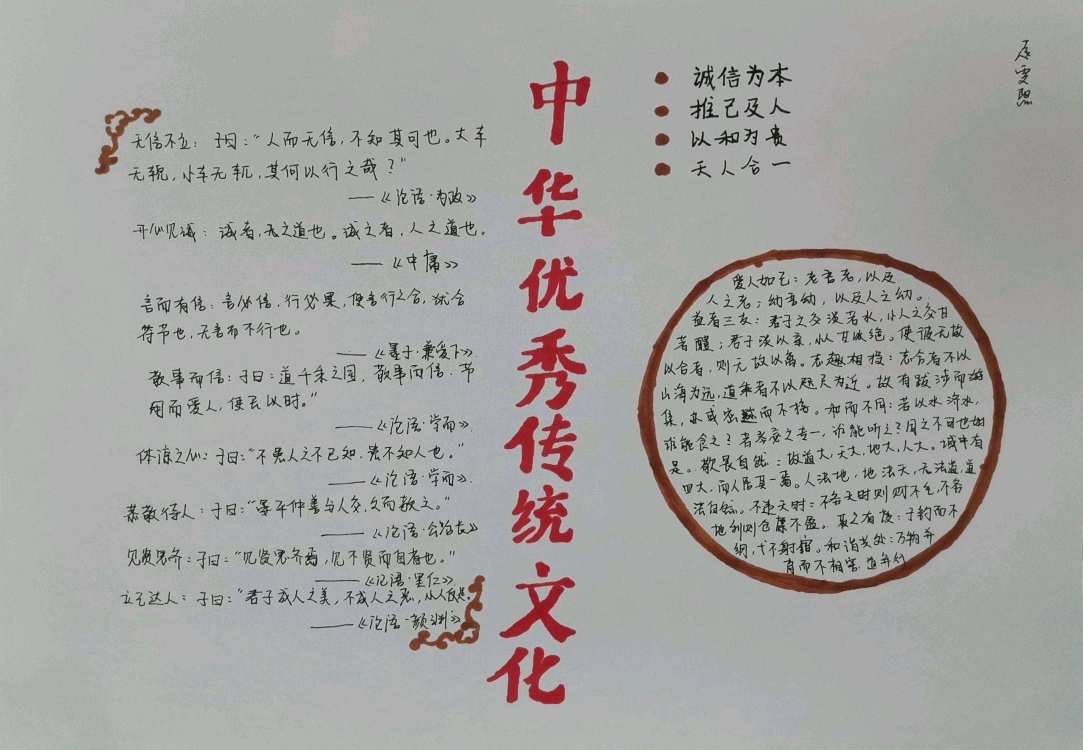 中华优秀传统文化
无信不立：子曰：“人而无信，不知其可也。大车
无輗，小车无軏，其何以行之哉？”
——《论语·为政》
开心见诚：诚者，天之道也。诚之者，人之道也。
——《中庸》
言而有信：言必信，行必果，使言行之合，犹合
符节也，无言而不行也。
——《墨子·兼爱下》
敬事而信：子曰：道千乘之国，敬事而信，节
用而爱人，使民以时。”
——《论语·学而》
体谅之心：子曰：“不患人之不已知，患不知人也。”
——《论语·学而》
恭敬待人：子曰：“晏平仲善与人交，久而敬之。”
——《论语·公冶长》
见贤思齐：子曰：“见贤思齐焉，见不贤而自省也。”
——《论语·里仁》
立己达人：子曰：“君子成人之美，不成人之恶，小人反是。
——《论语·颜渊》
诚信为本
推己及人
以和为贵
天人合一
爱人如己：老吾老，以及
人之老；幼吾幼，以及人之幼。
益者三友：君子之交淡若水，小人之交甘
若醴；君子淡以亲，小人甘以绝。使彼无故
以合者，则无故以离。志趣相投：志合者不以
山海为远，道乖者不以咫尺为近。故有跋涉而游
集，亦或密迩而不接。和而不同：若以水济水，
谁能食之？若琴瑟之专一，谁能听之？同之不可也如
是。敬畏自然：故道大，天大，地大，人大。域中有
四大，而人居其一焉。人法地，地法天，天法道，道
法自然。不违天时：不务天时则财不生，不务
地利则仓廪不盈。取之有度：子钓而不
纲，弋不射宿。和谐共处：万物并
育而不相害，道并行